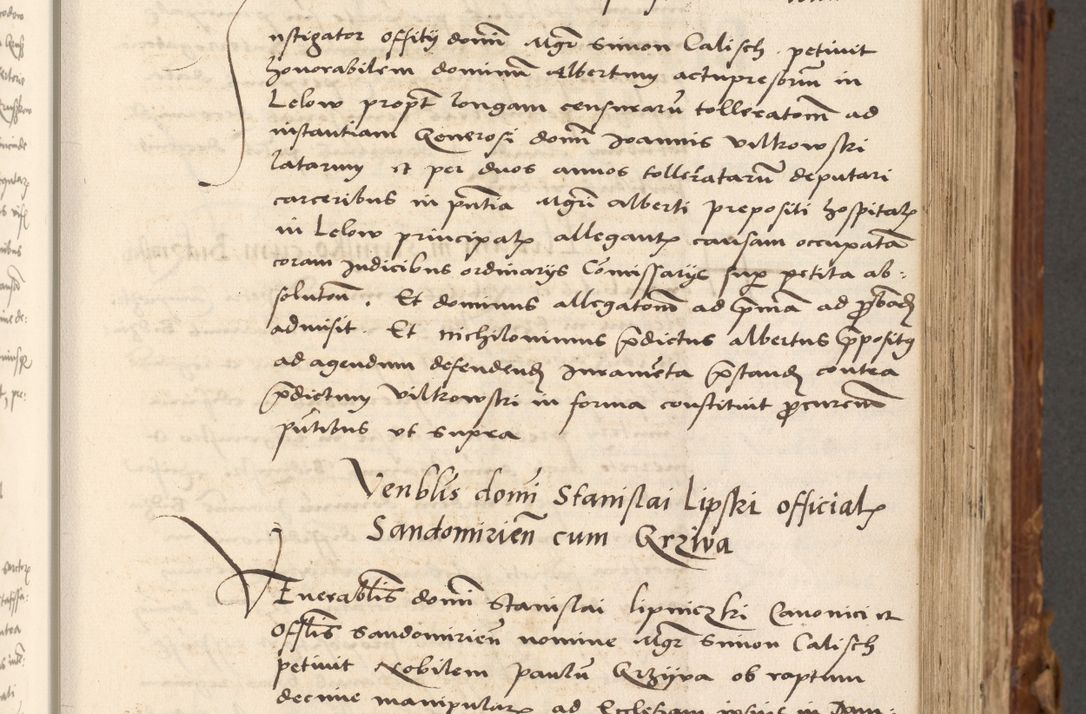 nstigator offitij domini Mgr Simon Calisch petiuit
honorabilem dominum Albertum actu presbrum in
Lelow propt longam censurarū tolleratom̄ ad
instantiam Generosi domi Joannis Vilkowski
latarum et per duos annos tolleratarū deputari
carceribus in pn̄tia Mgri Alberti prepositi hospital
in Lelow principal allegant causam occupatā
coram Judicibus ordinarijs Com̄issarijs sup petita ab:
solutom̄. Et dominus allegatom̄ ad pm̄a ad proband
admisit. Et nichilominus pdictus albertus ppositus
ad agendum defendend Juramēta pstand contra
pdictum Vilkowski in forma constituit procurem̄
pn̄tibus vt supra
Venblis domi Stanislai Lipski official
Sandomirien̄ cum Krziwa
VEnerablis domi Stanislai lipniczki Canonici et
Offlis Sandomirien̄ nomine Mgr Simon Calisch
petiuit Nobilem Paulū Krzijwa ob raptum
decime manipular ad Ecclesiam ipsius in